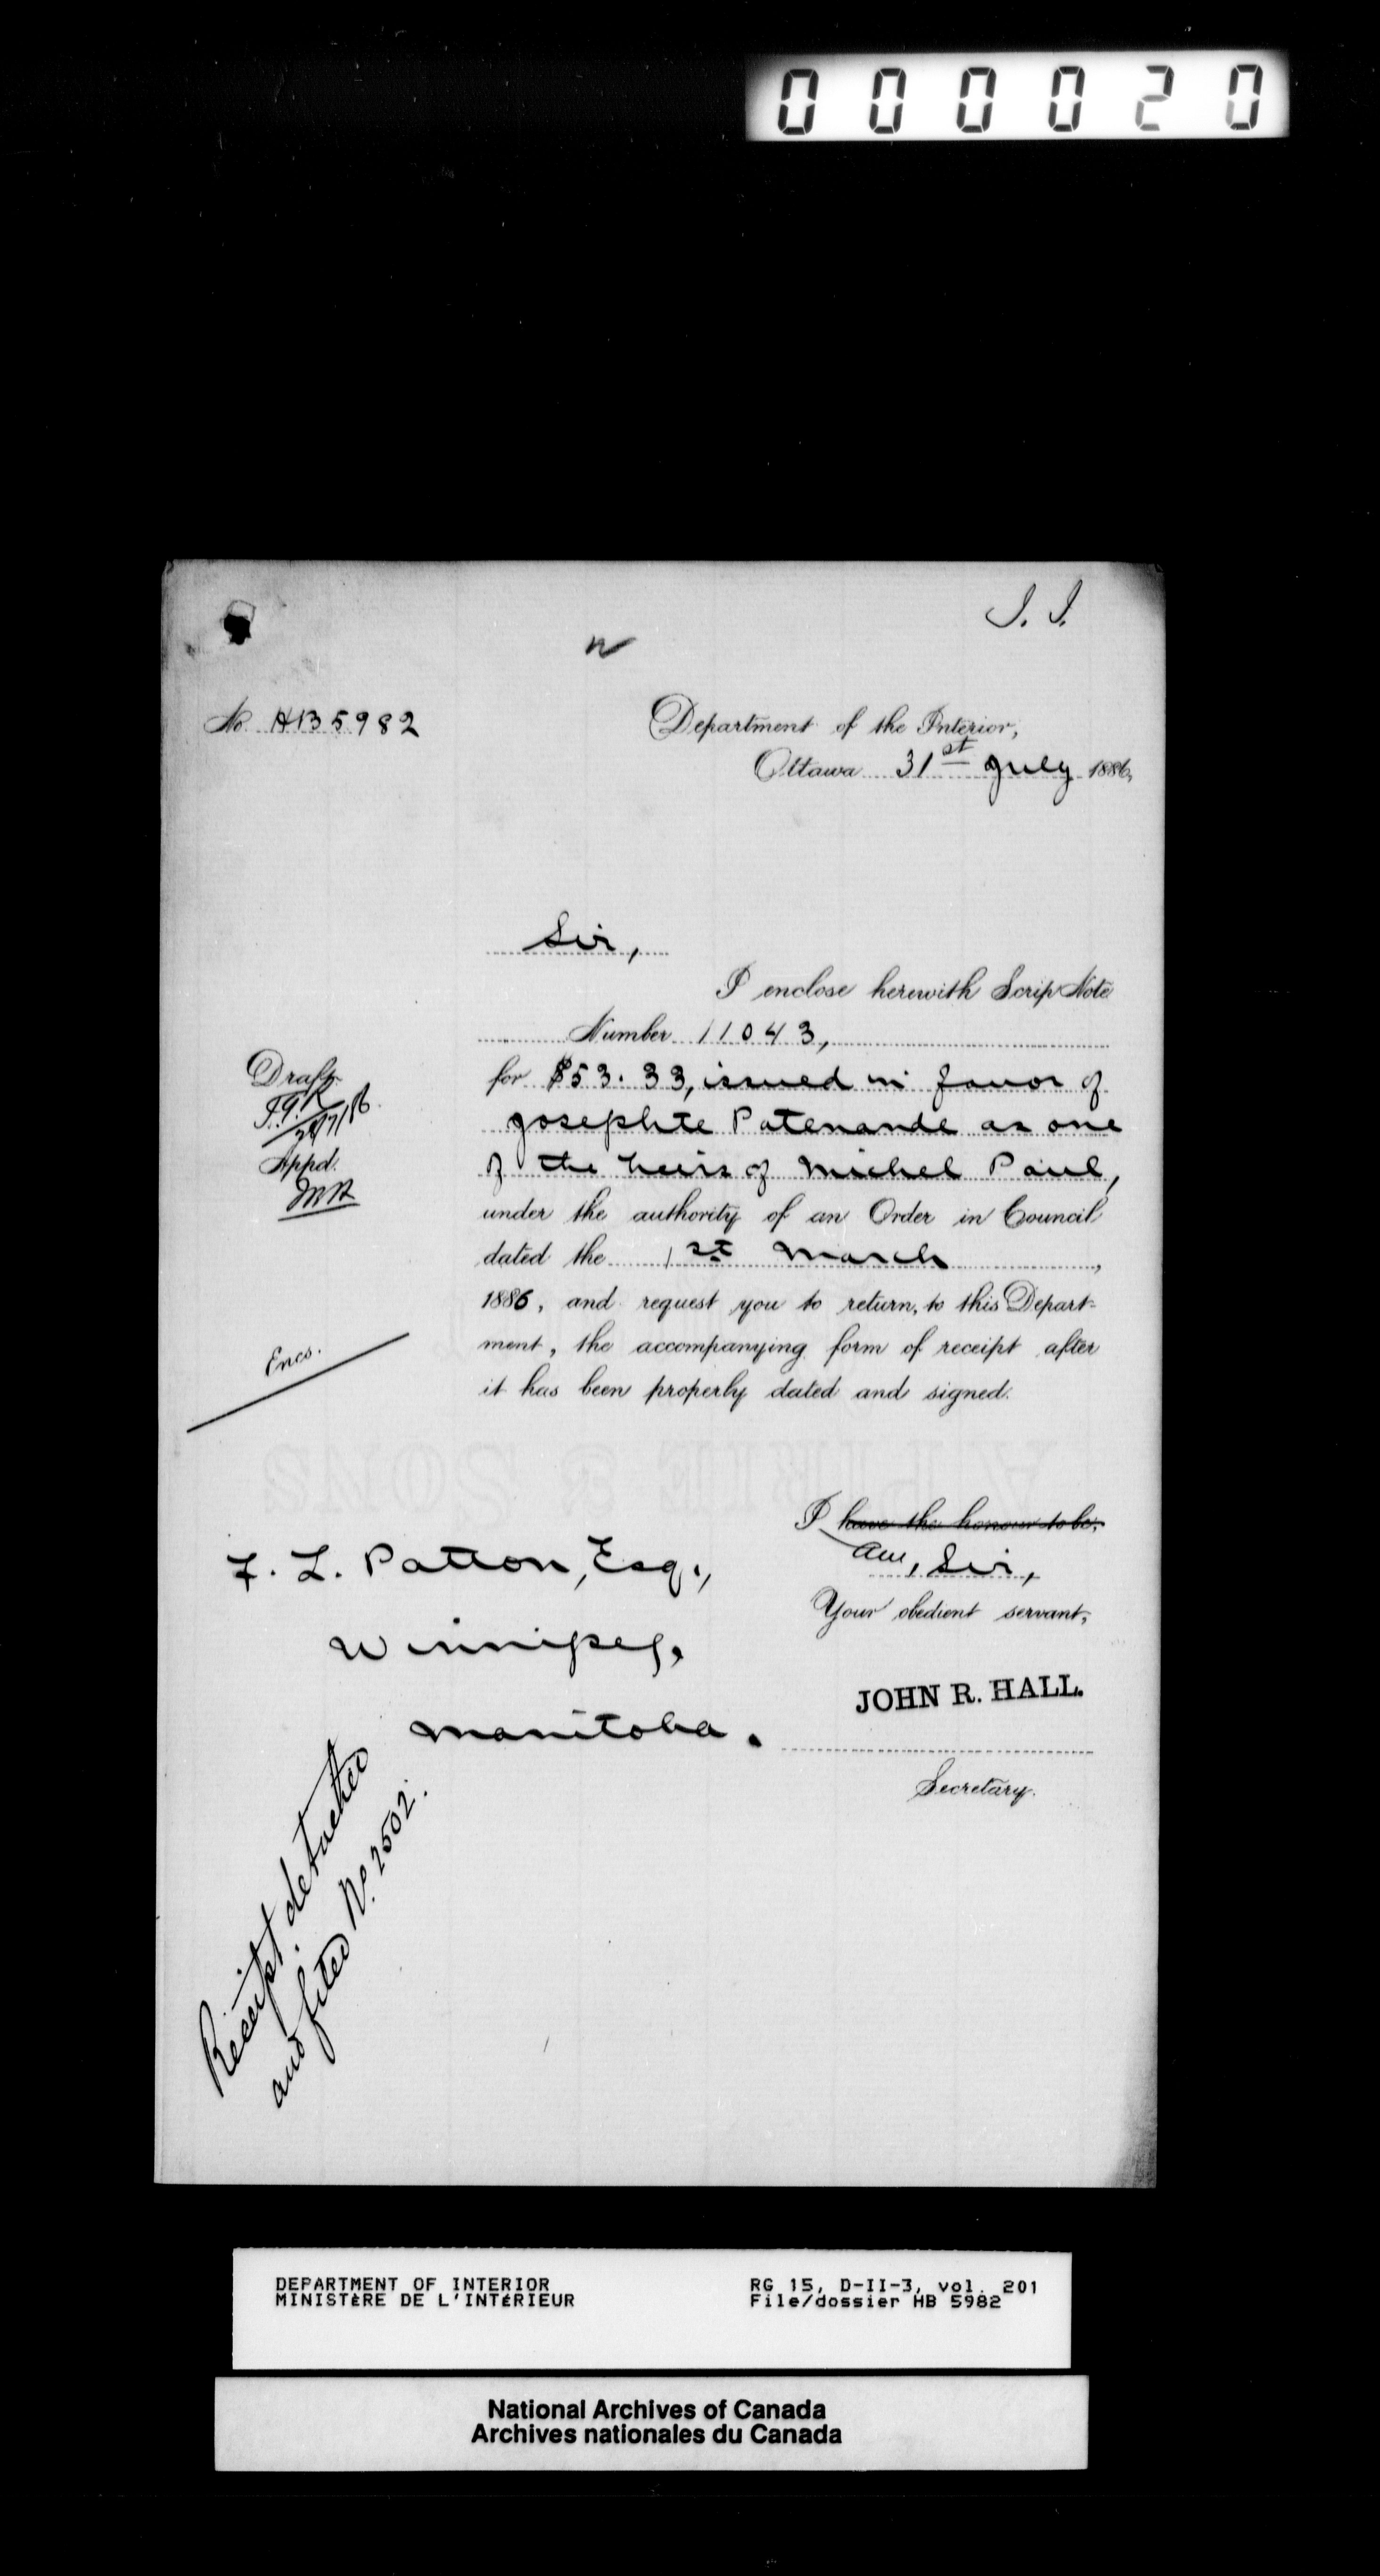 000020
J. J.
No. HB 5982
Department of the Interior,
Ottawa 31st July 1886,
Sir,
I enclose herewith Scrip Note
Number 11043,
for $53.33, issued in favor of
Josephte Patenande as one
of the heirs of Michel Paul,
under the authority of an Order in Council
dated the 1st March,
1886, and request you to return, to this Depart-
ment, the accompanying form of receipt after
it has been properly dated and signed.
Draft
Appd.
Encs.
I have the honour to be,
am, Sir,
Your obedient servant,
JOHN R. HALL.
Secretary.
F. L. Patton, Esq.,
Winnipeg,
Manitoba.
Receipt detached
and filed No. 2502.
DEPARTMENT OF INTERIOR
MINISTÈRE DE L'INTÉRIEUR
RG 15, D-II-3, vol. 201
File/dossier HB 5982
National Archives of Canada
Archives nationales du Canada